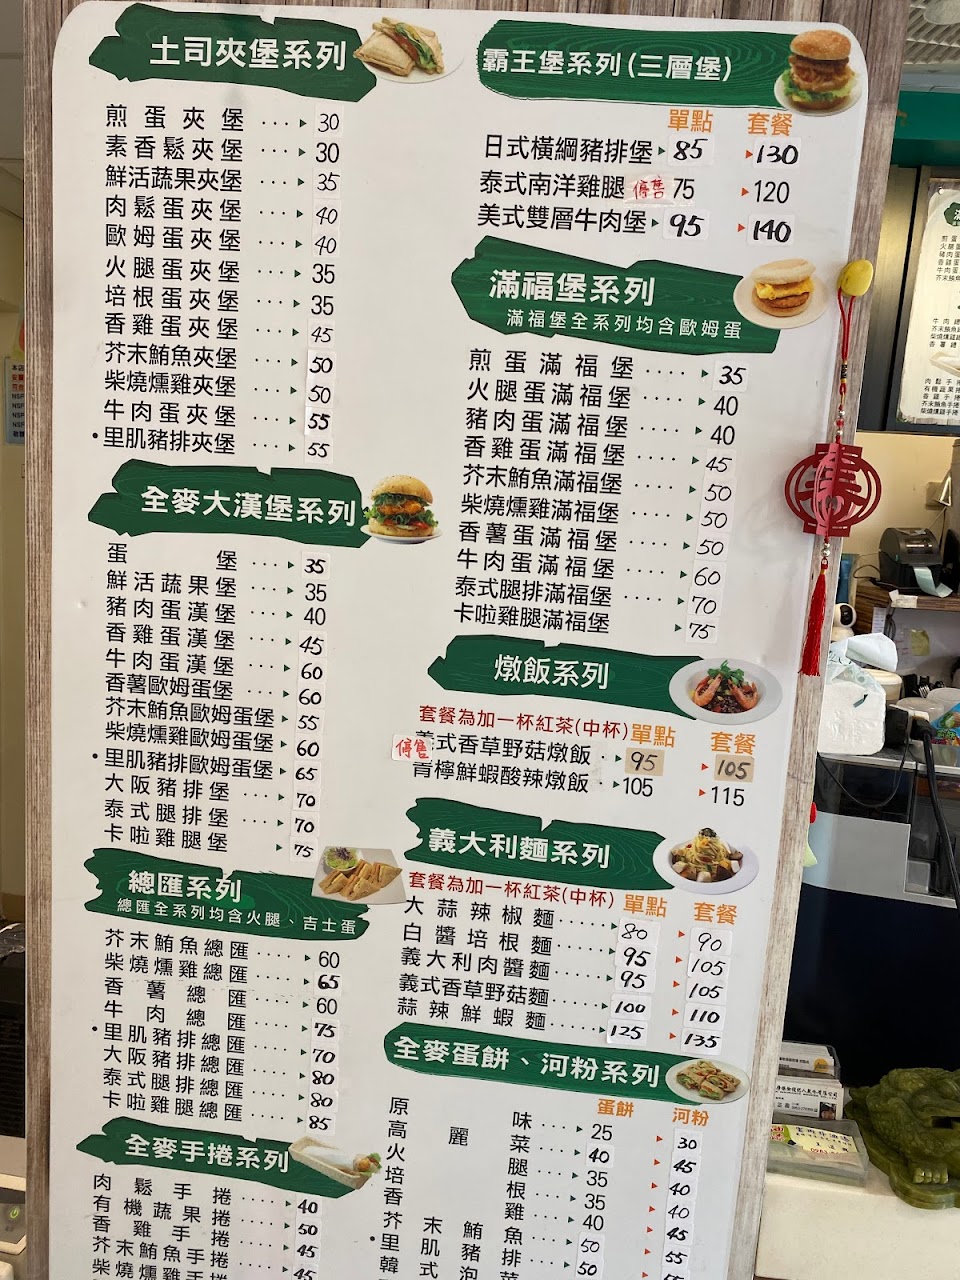 土司夾堡系列
煎蛋夾堡 ····▸ 30
素香鬆夾堡 ···▸ 30
鮮活蔬果夾堡 ···▸ 35
肉鬆蛋夾堡 ···▸ 40
歐姆蛋夾堡 ···▸ 40
火腿蛋夾堡 ···▸ 35
培根蛋夾堡 ···▸ 35
香雞蛋夾堡 ···▸ 45
芥末鮪魚夾堡 ···▸ 50
柴燒燻雞夾堡 ···▸ 50
牛肉蛋夾堡 ···▸ 55
•里肌豬排夾堡 ···▸ 55
全麥大漢堡系列
蛋堡 ···▸ 35
鮮活蔬果堡 ···▸ 35
豬肉蛋漢堡 ···▸ 40
香雞蛋漢堡 ···▸ 45
牛肉蛋漢堡 ···▸ 60
香薯歐姆蛋堡 ···▸ 60
芥末鮪魚歐姆蛋堡 ▸ 55
柴燒燻雞歐姆蛋堡 ▸ 60
•里肌豬排歐姆蛋堡 ▸ 65
大阪豬排堡 ····▸ 70
泰式腿排堡 ····▸ 70
卡啦雞腿堡 ····▸ 75
總匯系列
總匯全系列均含火腿、吉士蛋
芥末鮪魚總匯 ····▸ 60
柴燒燻雞總匯 ····▸ 65
香薯總匯 ····▸ 60
牛肉總匯 ····▸ 75
•里肌豬排總匯 ····▸ 70
大阪豬排總匯 ····▸ 80
泰式腿排總匯 ····▸ 80
卡啦雞腿總匯 ····▸ 85
全麥手捲系列
肉鬆手捲 ····▸ 40
有機蔬果捲 ····▸ 50
香雞手捲 ····▸ 45
芥末鮪魚手捲 ····▸ 45
柴燒燻雞手捲 ····▸ 45
霸王堡系列(三層堡)
單點 套餐
日式橫綱豬排堡▸ 85 ▸130
泰式南洋雞腿 停售 75 ▸120
美式雙層牛肉堡▸ 95 ▸140
滿福堡系列
滿福堡全系列均含歐姆蛋
煎蛋滿福堡 ····▸ 35
火腿蛋滿福堡 ····▸ 40
豬肉蛋滿福堡 ····▸ 40
香雞蛋滿福堡 ····▸ 45
芥末鮪魚滿福堡 ····▸ 50
柴燒燻雞滿福堡 ····▸ 50
香薯蛋滿福堡 ····▸ 50
牛肉蛋滿福堡 ····▸ 60
泰式腿排滿福堡 ····▸ 70
卡啦雞腿滿福堡 ····▸ 75
燉飯系列
套餐為加一杯紅茶(中杯) 單點 套餐
停售 義式香草野菇燉飯 ··▸ 95 ▸ 105
青檸鮮蝦酸辣燉飯 ··▸105 ▸115
義大利麵系列
套餐為加一杯紅茶(中杯) 單點 套餐
大蒜辣椒麵 ·····▸ 80 ▸ 90
白醬培根麵 ·····▸ 95 ▸ 105
義大利肉醬麵 ·····▸ 95 ▸ 105
義式香草野菇麵 ·····▸ 100 ▸ 110
蒜辣鮮蝦麵 ·····▸ 125 ▸ 135
全麥蛋餅、河粉系列
蛋餅 河粉
原味 ····▸ 25 ▸ 30
高麗菜 ···▸ 40 ▸ 45
火腿 ···▸ 35 ▸ 40
培根 ···▸ 35 ▸ 40
香雞 ···▸ 40 ▸ 45
芥末鮪魚 ···▸ 50 ▸ 55
•里肌豬排 ···▸ 50
韓式泡菜